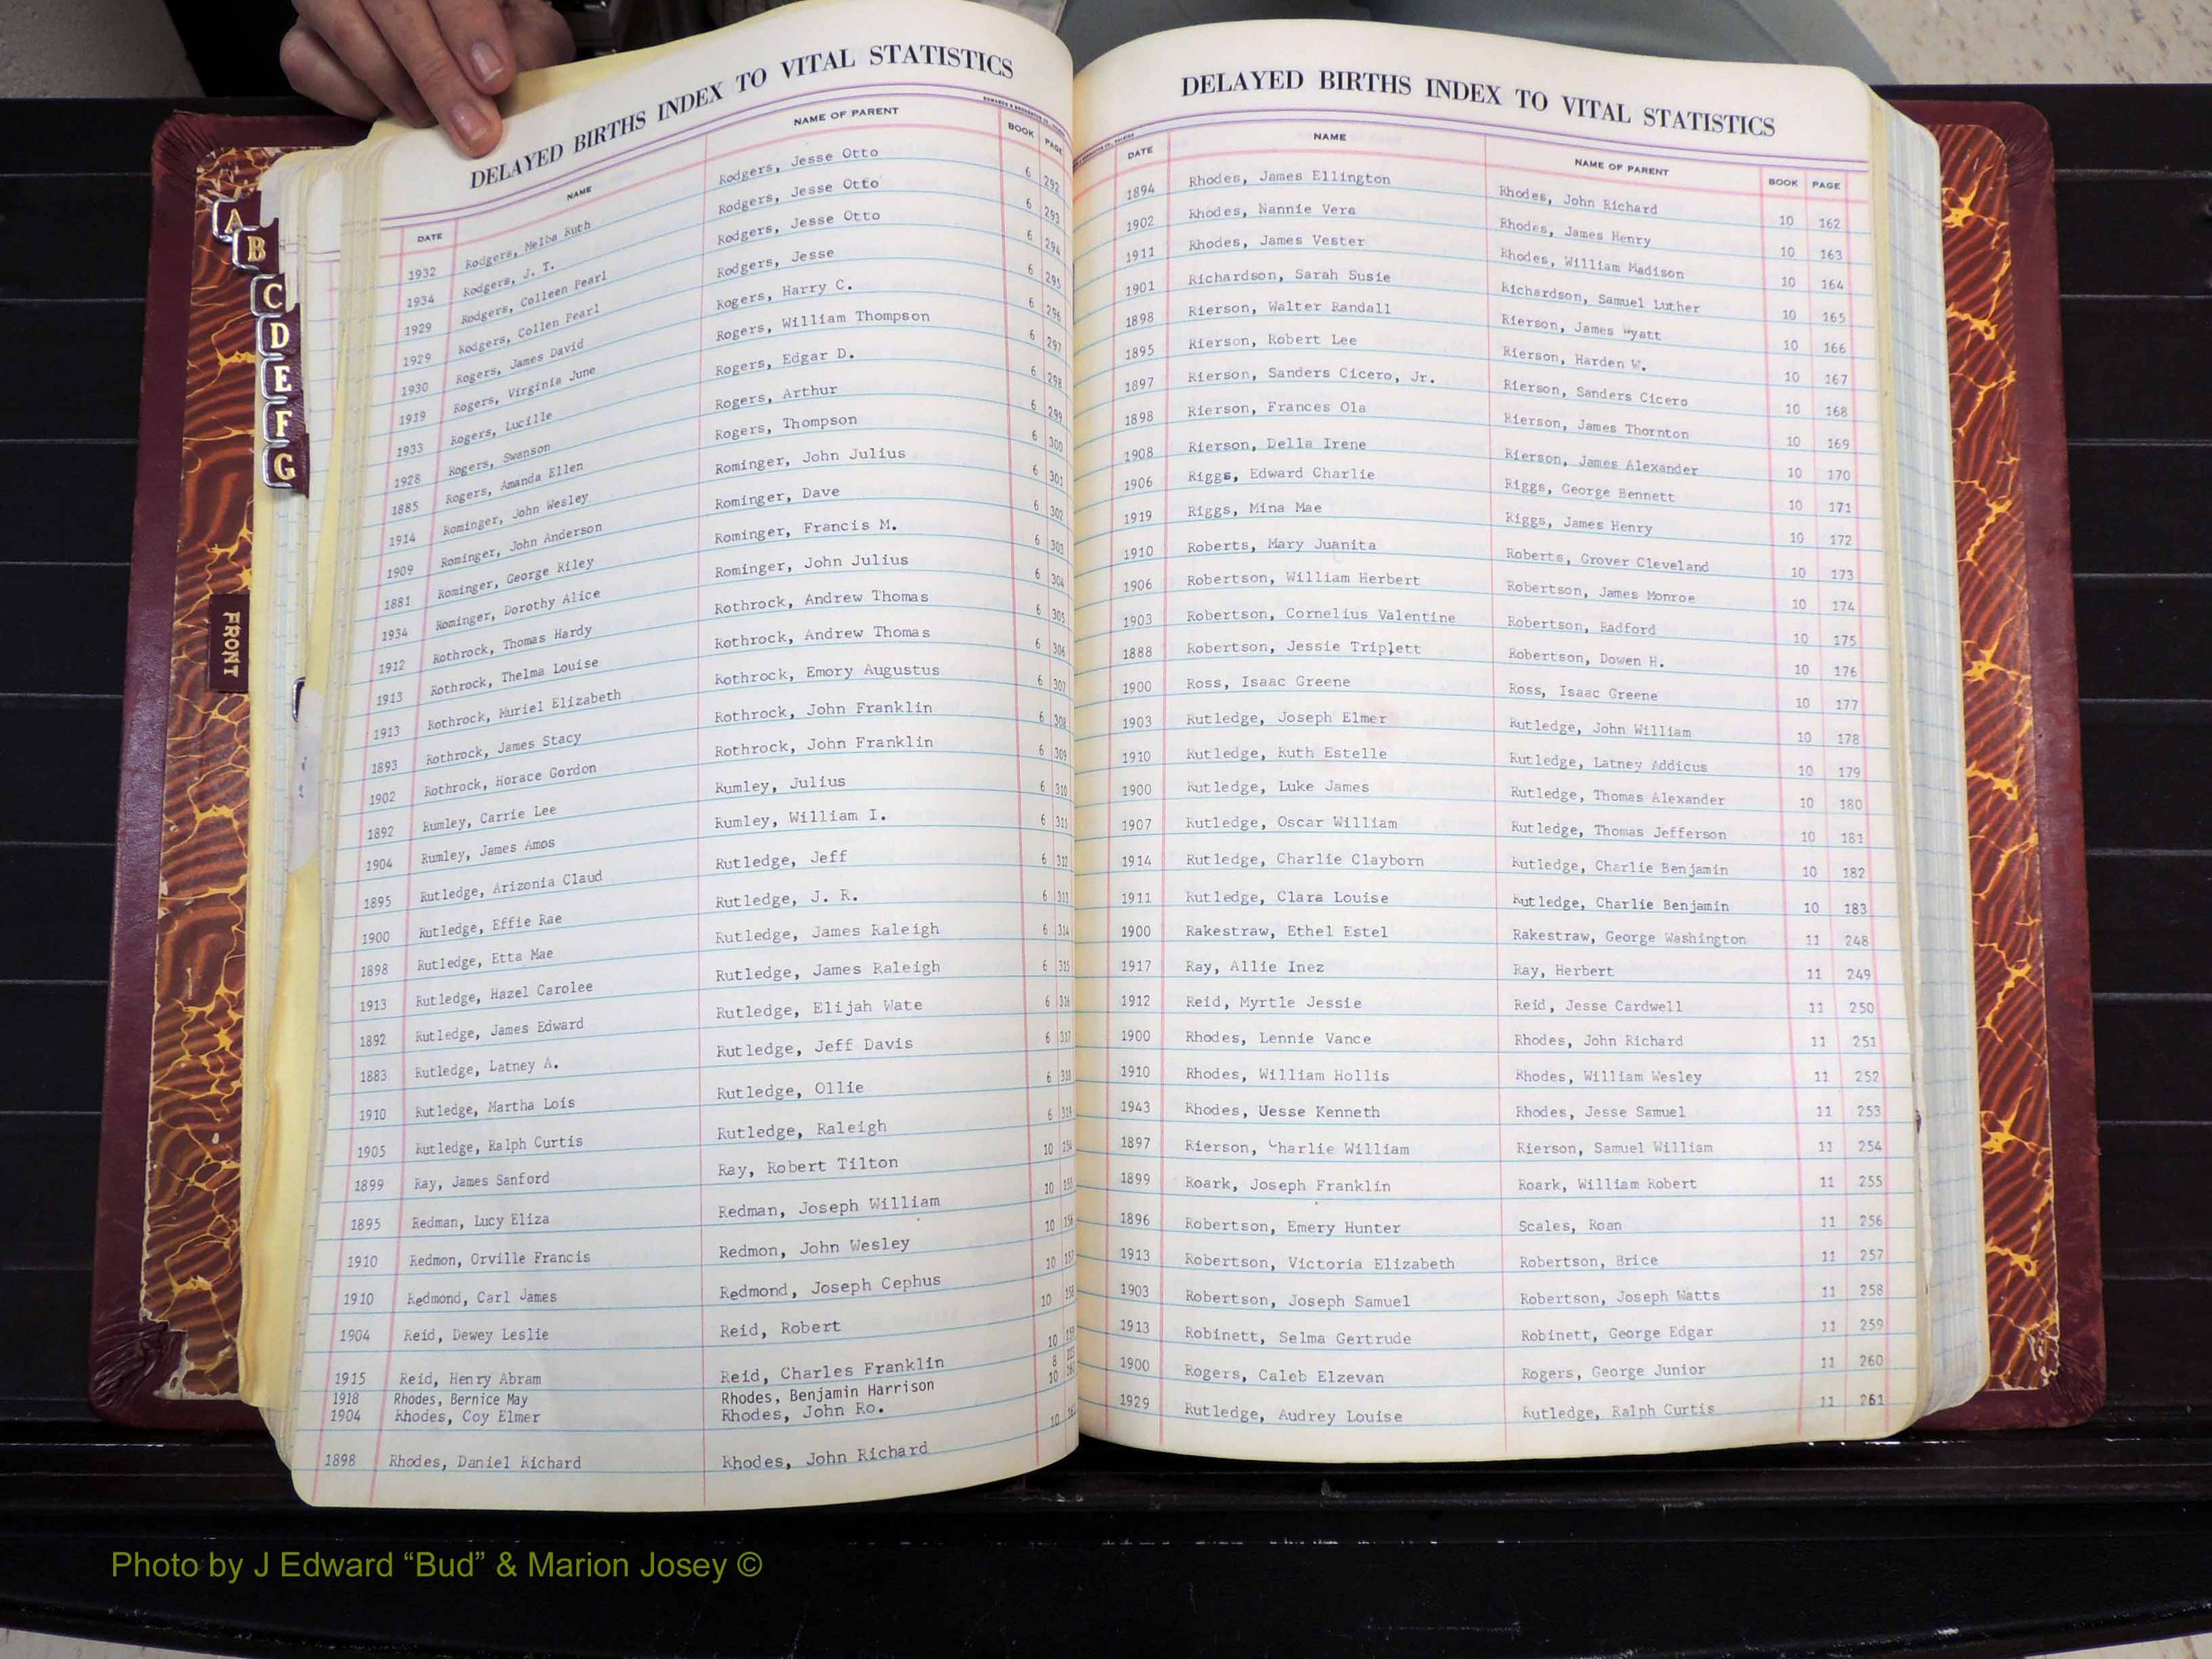 DELAYED BIRTHS INDEX TO VITAL STATISTICS
DATE NAME NAME OF PARENT BOOK PAGE
1932 Rodgers, Melba Ruth Rodgers, Jesse Otto 6 292
1934 Rodgers, J. T. Rodgers, Jesse Otto 6 293
1929 Rodgers, Colleen Pearl Rodgers, Jesse Otto 6 294
1929 Rodgers, Collen Pearl Rodgers, Jesse 6 295
1930 Rogers, James David Rogers, Harry C. 6 296
1939 Rogers, Virginia June Rogers, William Thompson 6 297
1933 Rogers, Lucille Rogers, Edgar D. 6 298
1928 Rogers, Swanson Rogers, Arthur 6 299
1885 Rogers, Amanda Ellen Rogers, Thompson 6 300
1914 Rominger, John Wesley Rominger, John Julius 6 301
1909 Rominger, John Anderson Rominger, Dave 6 302
1881 Rominger, George Riley Rominger, Francis M. 6 303
1934 Rominger, Dorothy Alice Rominger, John Julius 6 304
1912 Rothrock, Thomas Hardy Rothrock, Andrew Thomas 6 305
1913 Rothrock, Thelma Louise Rothrock, Andrew Thomas 6 306
1913 Rothrock, Muriel Elizabeth Rothrock, Emory Augustus 6 307
1893 Rothrock, James Stacy Rothrock, John Franklin 6 308
1902 Rothrock, Horace Gordon Rothrock, John Franklin 6 309
1892 Rumley, Carrie Lee Rumley, Julius 6 310
1904 Rumley, James Amos Rumley, William I. 6 311
1895 Rutledge, Arizonia Claud Rutledge, Jeff 6 312
1900 Rutledge, Effie Rae Rutledge, J. R. 6 313
1898 Rutledge, Etta Mae Rutledge, James Raleigh 6 314
1913 Rutledge, Hazel Carolee Rutledge, James Raleigh 6 315
1892 Rutledge, James Edward Rutledge, Elijah Wate 6 316
1883 Rutledge, Latney A. Rutledge, Jeff Davis 6 317
1910 Rutledge, Martha Lois Rutledge, Ollie 6 318
1905 Rutledge, Ralph Curtis Rutledge, Raleigh 6 319
1899 Ray, James Sanford Ray, Robert Tilton 10 154
1895 Redman, Lucy Eliza Redman, Joseph William 10 155
1910 Redmon, Orville Francis Redmon, John Wesley 10 156
1910 Redmond, Carl James Redmond, Joseph Cephus 10 157
1904 Reid, Dewey Leslie Reid, Robert 10 158
1915 Reid, Henry Abram Reid, Charles Franklin 10 159
1918 Rhodes, Bernice May Rhodes, Benjamin Harrison 8
1904 Rhodes, Coy Elmer Rhodes, John Ro. 10 160
1898 Rhodes, Daniel Richard Rhodes, John Richard 10 161
DELAYED BIRTHS INDEX TO VITAL STATISTICS
DATE NAME NAME OF PARENT BOOK PAGE
1894 Rhodes, James Ellington Rhodes, John Richard 10 162
1902 Rhodes, Nannie Vera Rhodes, James Henry 10 163
1911 Rhodes, James Vester Rhodes, William Madison 10 164
1901 Richardson, Sarah Susie Richardson, Samuel Luther 10 165
1898 Rierson, Walter Randall Rierson, James Wyatt 10 166
1895 Rierson, Robert Lee Rierson, Harden W. 10 167
1897 Rierson, Sanders Cicero, Jr. Rierson, Sanders Cicero 10 168
1898 Rierson, Frances Ola Rierson, James Thornton 10 169
1908 Rierson, Della Irene Rierson, James Alexander 10 170
1906 Riggs, Edward Charlie Riggs, George Bennett 10 171
1919 Riggs, Mina Mae Riggs, James Henry 10 172
1910 Roberts, Mary Juanita Roberts, Grover Cleveland 10 173
1906 Robertson, William Herbert Robertson, James Monroe 10 174
1903 Robertson, Cornelius Valentine Robertson, Radford 10 175
1888 Robertson, Jessie Triplett Robertson, Dowen H. 10 176
1900 Ross, Isaac Greene Ross, Isaac Greene 10 177
1903 Rutledge, Joseph Elmer Rutledge, John William 10 178
1910 Rutledge, Ruth Estelle Rutledge, Latney Addicus 10 179
1900 Rutledge, Luke James Rutledge, Thomas Alexander 10 180
1907 Rutledge, Oscar William Rutledge, Thomas Jefferson 10 181
1914 Rutledge, Charlie Clayborn Rutledge, Charlie Benjamin 10 182
1911 Rutledge, Clara Louise Rutledge, Charlie Benjamin 10 183
1900 Rakestraw, Ethel Estel Rakestraw, George Washington 11 248
1917 Ray, Allie Inez Ray, Herbert 11 249
1912 Reid, Myrtle Jessie Reid, Jesse Cardwell 11 250
1900 Rhodes, Lennie Vance Rhodes, John Richard 11 251
1910 Rhodes, William Hollis Rhodes, William Wesley 11 252
1943 Rhodes, Uesse Kenneth Rhodes, Jesse Samuel 11 253
1897 Rierson, Charlie William Rierson, Samuel William 11 254
1899 Roark, Joseph Franklin Roark, William Robert 11 255
1896 Robertson, Emery Hunter Scales, Roan 11 256
1913 Robertson, Victoria Elizabeth Robertson, Brice 11 257
1903 Robertson, Joseph Samuel Robertson, Joseph Watts 11 258
1913 Robinett, Selma Gertrude Robinett, George Edgar 11 259
1900 Rogers, Caleb Elzevan Rogers, George Junior 11 260
1929 Rutledge, Audrey Louise Rutledge, Ralph Curtis 11 261
A
B
C
D
E
F
G
FRONT
Photo by J Edward “Bud” & Marion Josey ©